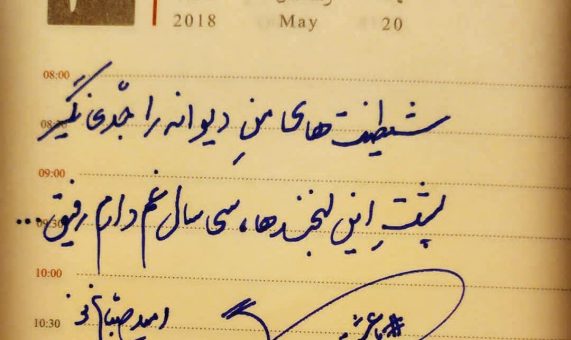 2018 May 20
08:00
شیطنت های منِ دیوانه را جدّی نگیر
08:30
09:00
پشتِ این لبخندها، سی سال غم دارم رفیق...
09:30
10:00
امید صبّاغ نو
10:30